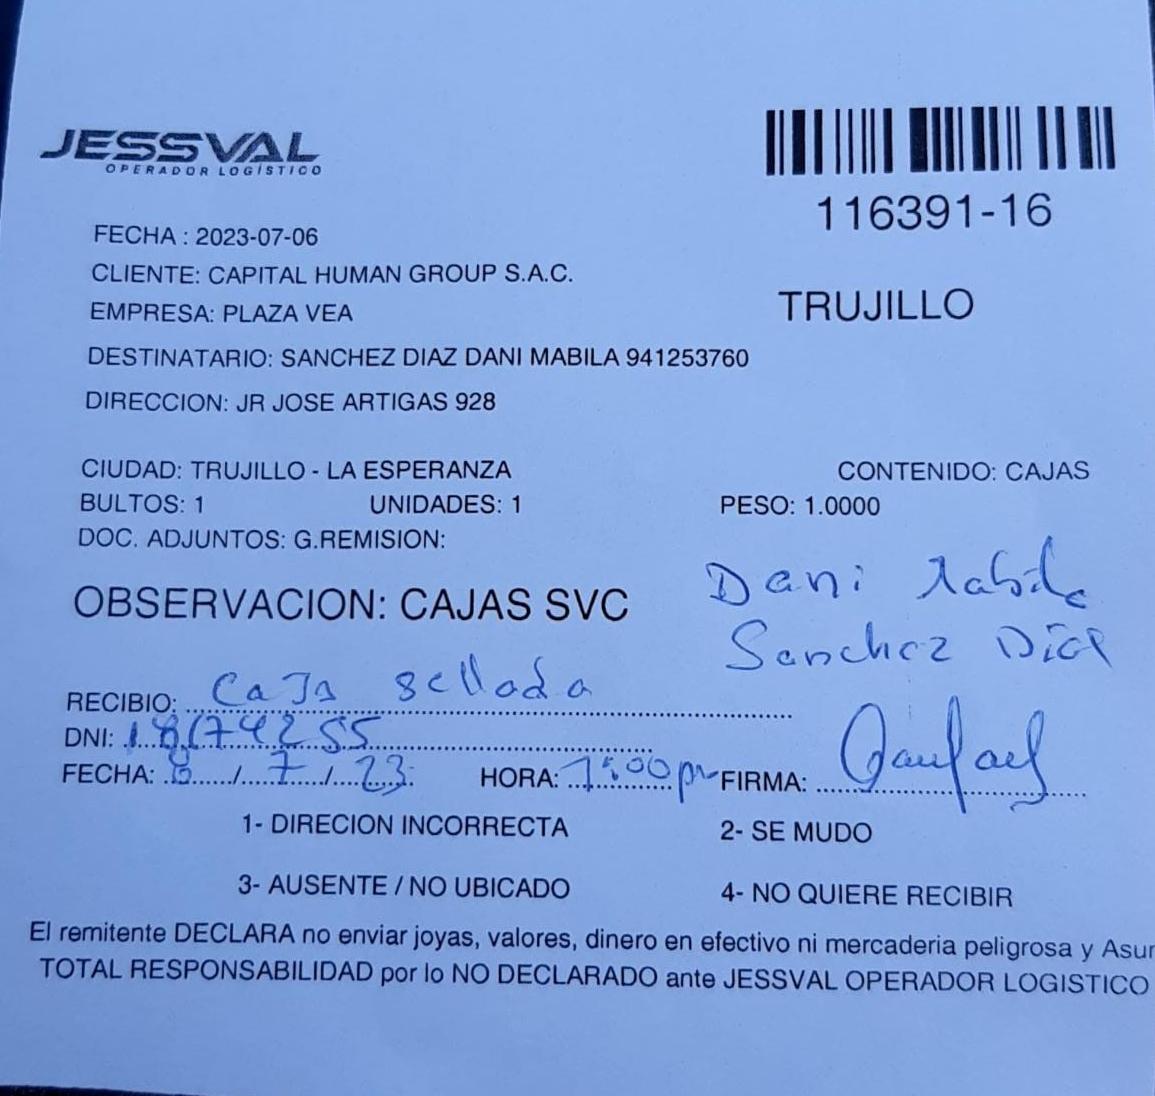 JESSVAL
OPERADOR LOGISTICO
116391-16
FECHA : 2023-07-06
CLIENTE: CAPITAL HUMAN GROUP S.A.C.
EMPRESA: PLAZA VEA
TRUJILLO
DESTINATARIO: SANCHEZ DIAZ DANI MABILA 941253760
DIRECCION: JR JOSE ARTIGAS 928
CIUDAD: TRUJILLO - LA ESPERANZA CONTENIDO: CAJAS
BULTOS: 1 UNIDADES: 1 PESO: 1.0000
DOC. ADJUNTOS: G.REMISION:
OBSERVACION: CAJAS SVC
Dani
Sanchez Diaz
RECIBIO: Caja sellada
DNI: 18174255
FECHA: 8/7/23 HORA: 1:00 pm FIRMA:
1- DIRECION INCORRECTA 2- SE MUDO
3- AUSENTE / NO UBICADO 4- NO QUIERE RECIBIR
El remitente DECLARA no enviar joyas, valores, dinero en efectivo ni mercaderia peligrosa y Asur
TOTAL RESPONSABILIDAD por lo NO DECLARADO ante JESSVAL OPERADOR LOGISTICO